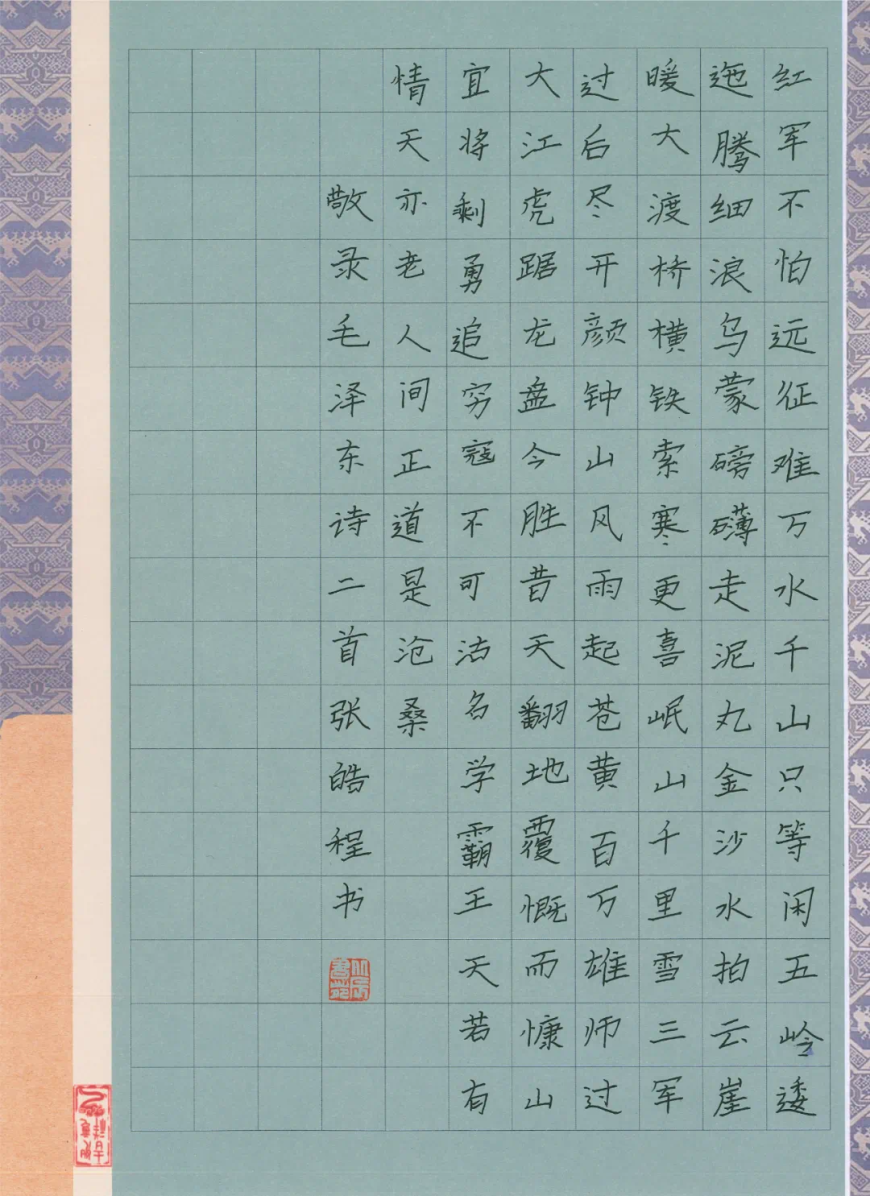 红军不怕远征难万水千山只等闲五岭逶
迤腾细浪乌蒙磅礴走泥丸金沙水拍云崖
暖大渡桥横铁索寒更喜岷山千里雪三军
过后尽开颜钟山风雨起苍黄百万雄师过
大江虎踞龙盘今胜昔天翻地覆慨而慷山
宜将剩勇追穷寇不可沽名学霸王天若有
情天亦老人间正道是沧桑
敬录毛泽东诗二首张皓程书